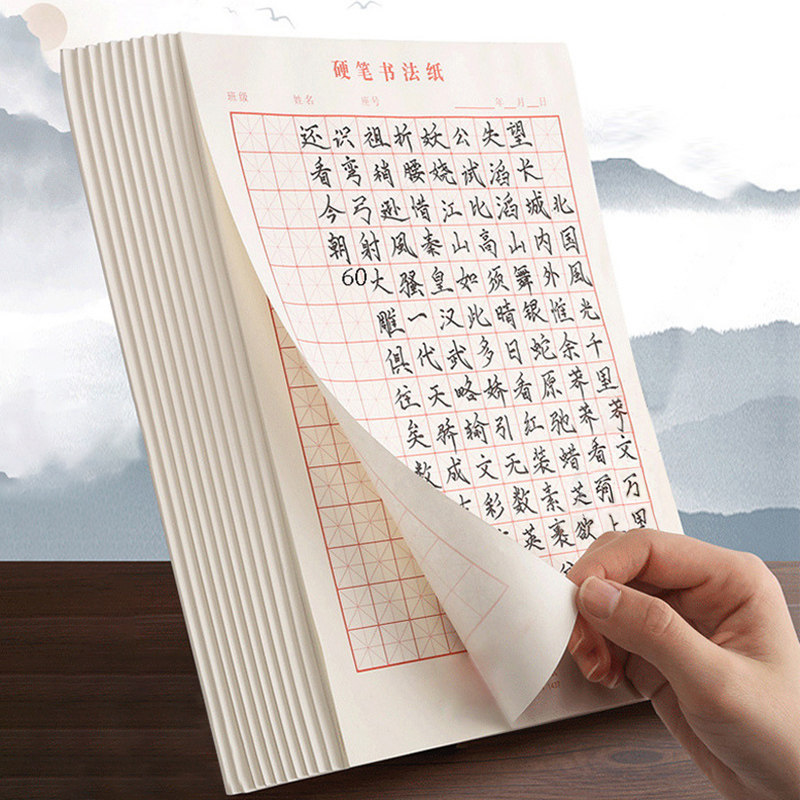 硬笔书法纸
班级 姓名 座号 年 月 日
北国風光千里文万里
望长城内外惟余莽莽看上
失滔滔山舞银蛇原驰蜡欲
公试比高须晴日看红装素裹
妖娆江山如此多娇引无数英
折腰惜秦皇汉武略输文彩
祖稍逊風骚一代天骄成
识弯弓射大雕俱往矣数
还看今朝60